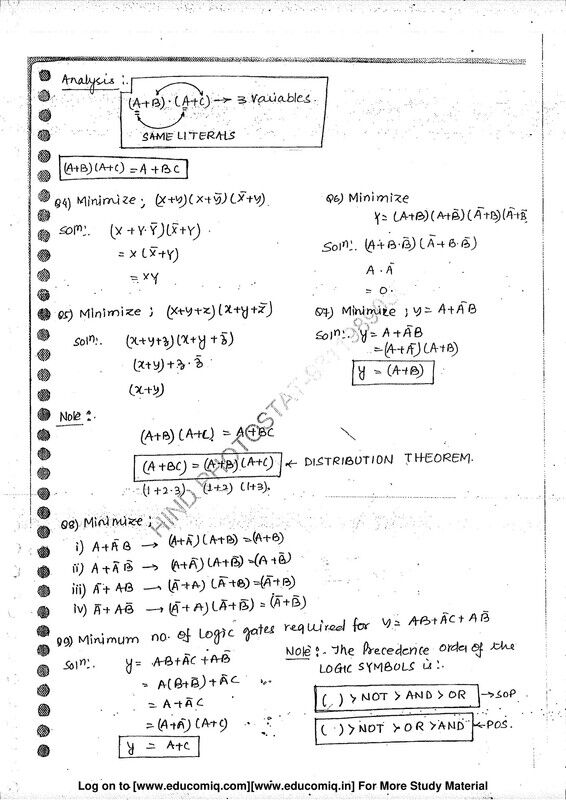 Analysis :.
(A+B)·(A+C) → 3 variables.
SAME LITERALS
(A+B)(A+C) = A+BC
Q4) Minimize ; (x+y)(x+ȳ)(x̄+y)
Soln:. (X+Y·Ȳ)(X̄+Y)
= X(X̄+Y)
= XY
Q6) Minimize
Y= (A+B)(A+B̄)(Ā+B)(Ā+B̄
Soln:. (A+B·B̄)(Ā+B·B̄)
A·Ā
= 0.
Q5) Minimize ; (x+y+z)(x+y+z̄)
Soln:. (x+y+z)(x+y+z̄)
(x+y)+z·z̄
(x+y)
Q7) Minimize ; y= A+ĀB
Soln:. y= A+ĀB
=(A+Ā)(A+B)
y = (A+B)
Note :.
(A+B)(A+C) = A+BC
(A+BC) = (A+B)(A+C) ← DISTRIBUTION THEOREM.
(1+2·3) (1+2) (1+3).
Q8) Minimize ;
i) A+ĀB → (A+Ā)(A+B)=(A+B)
ii) A+ĀB̄ → (A+Ā)(A+B̄)=(A+B̄)
iii) Ā+AB → (Ā+A)(Ā+B)=(Ā+B)
iv) Ā+AB̄ → (Ā+A)(Ā+B̄)=(Ā+B̄)
Q9) Minimum no. of Logic gates required for y= AB+ĀC+AB̄
Soln:. y= AB+ĀC+AB̄
= A(B+B̄)+ĀC
= A+ĀC
=(A+Ā)(A+C)
y = A+C
Note :. The Precedence order of the
LOGIC SYMBOLS is :.
( ) > NOT > AND > OR → SOP
( ) > NOT > OR > AND ← POS.
HIND PHOTOSTAT
Log on to [www.educomiq.com][www.educomiq.in] For More Study Material